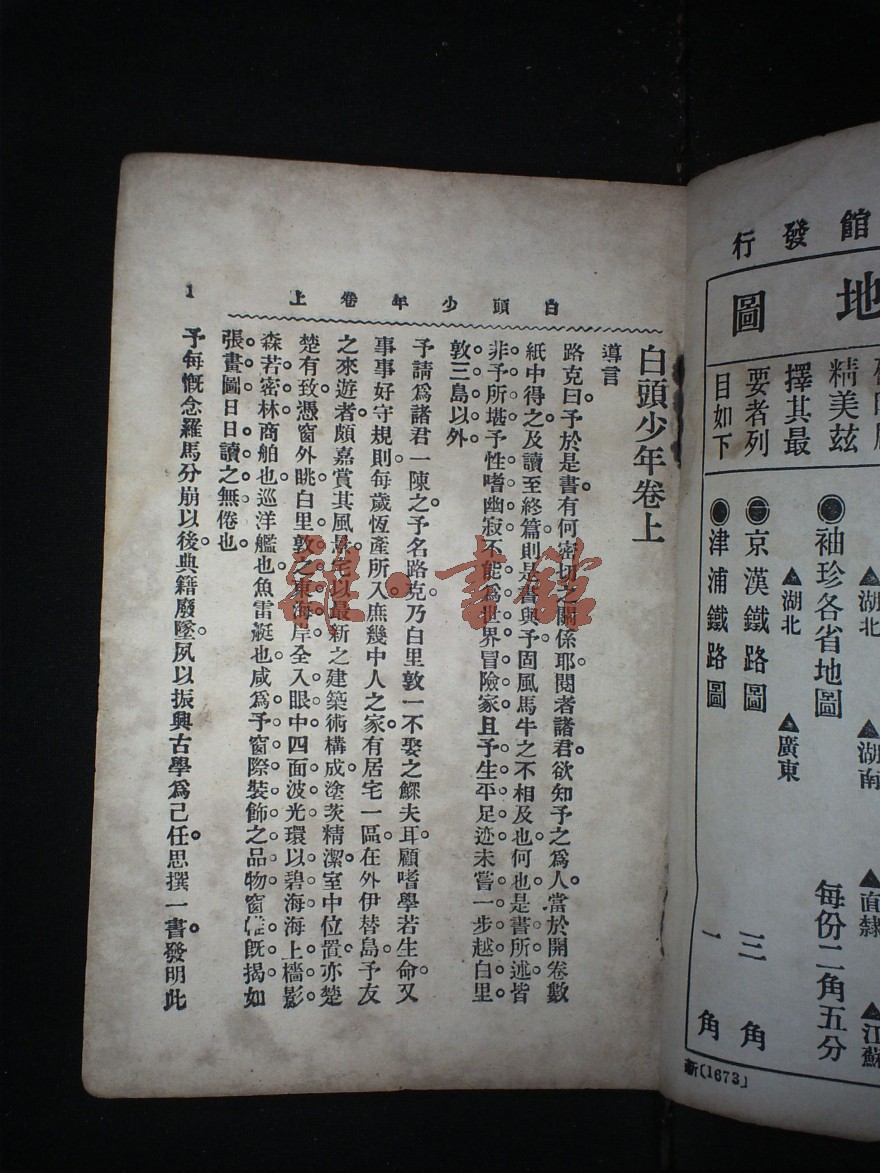 館發行
地圖
精美玆
擇其最
要者列
目如下
●袖珍各省地圖
▲湖南
▲直隸
▲江蘇
▲湖北
▲廣東
每份二角五分
京漢鐵路圖
三角
津浦鐵路圖
一角
新(1673)
白頭少年卷上
1
白頭少年卷上
導言
路克曰予於是書有何密切之關係耶閱者諸君欲知予之爲人當於開卷數
紙中得之及讀至終篇則是書與予固風馬牛之不相及也何也是書所述皆
非予所堪予性嗜幽寂不能爲世界冒險家且予生平足迹未嘗一步越白里
敦三島以外
予請爲諸君一陳之予名路克乃白里敦一不娶之鰥夫耳顧嗜學若生命又
事事好守規則每歲恆產所入庶幾中人之家有居宅一區在外伊替島予友
之來遊者頗嘉賞其風景宅以最新之建築術構成塗茨精潔室中位置亦楚
楚有致憑窗外眺白里敦之東海岸全入眼中四面波光環以碧海海上檣影
森若密林商舶也巡洋艦也魚雷艇也咸爲予窗際裝飾之品物窗帷旣揭如
張畫圖日日讀之無倦也
予每慨念羅馬分崩以後典籍廢墜夙以振興古學爲己任思撰一書發明此
雜·書館